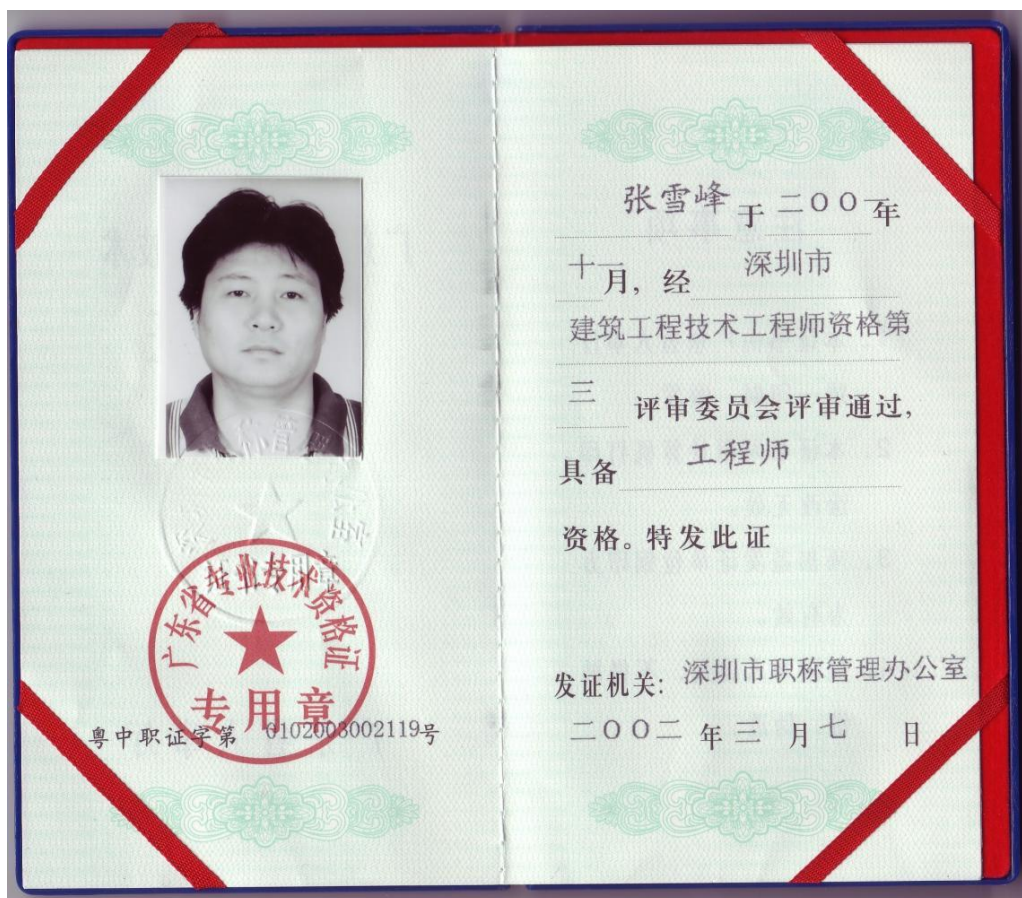 广东省专业技术资格证
专用章
粤中职证字第 0102003002119号
张雪峰 于 二OO一年
十一月，经 深圳市
建筑工程技术工程师资格第
三 评审委员会评审通过，
具备 工程师
资格。特发此证
发证机关：深圳市职称管理办公室
二OO二 年 三 月 七 日